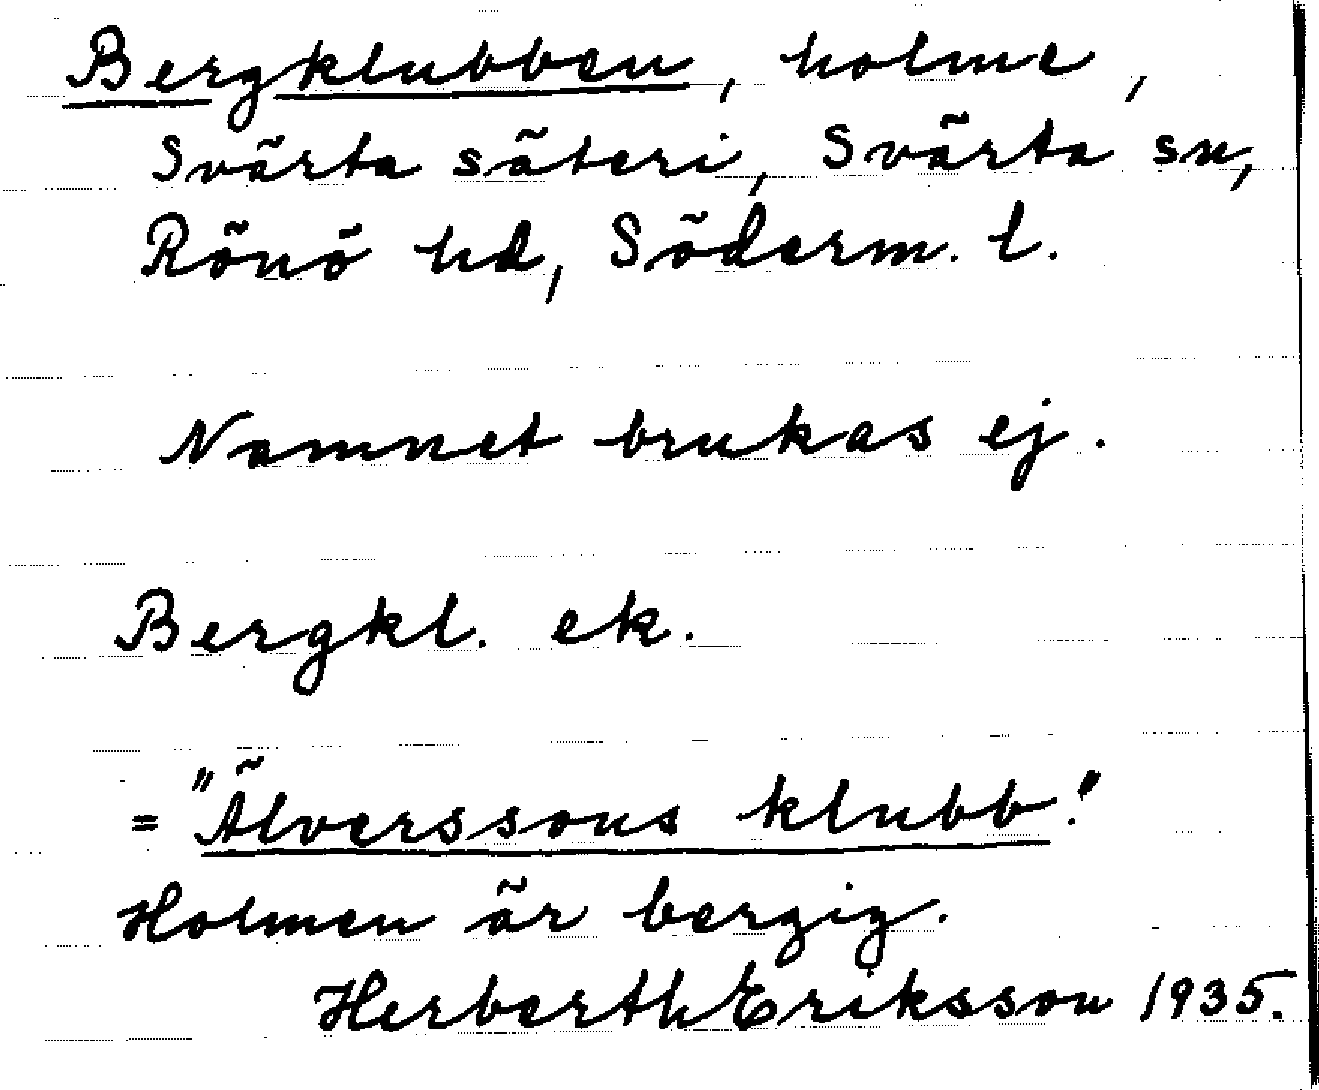 Bergklubben, holme,
Svärta säteri, Svärta sn,
Rönö hd, Söderm. l.
Namnet brukas ej.
Bergkl. ek.
= "Älverssons klubb."
Holmen är bergig.
Herberth Eriksson 1935.